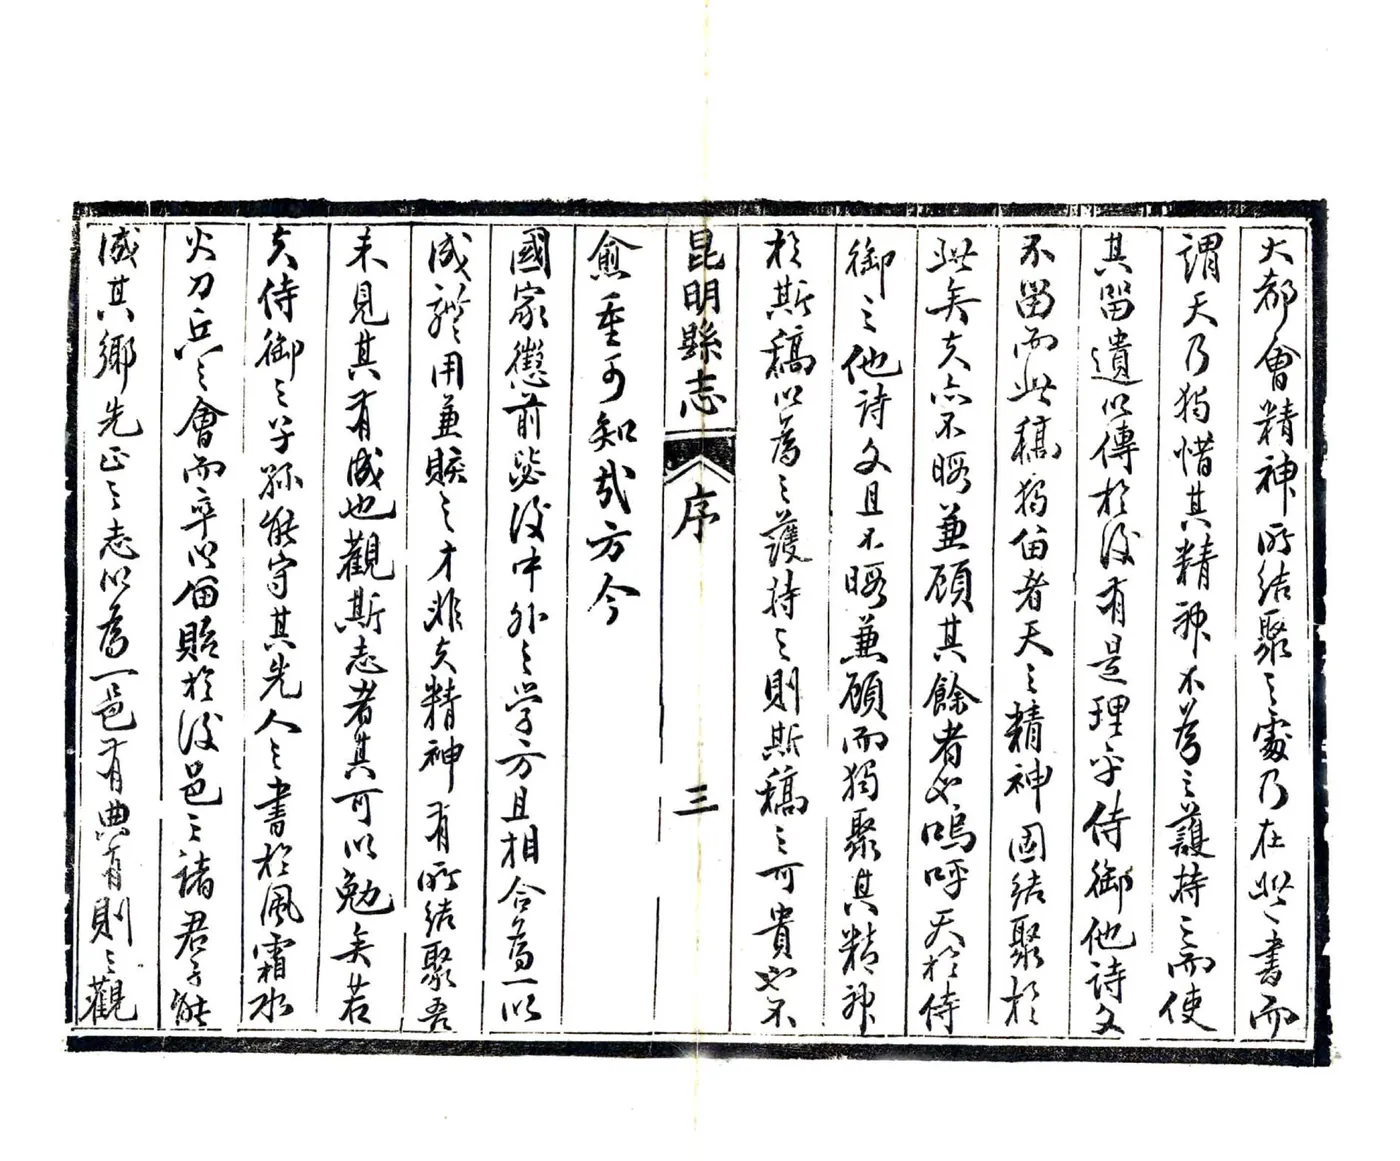 大都會精神所結聚之處乃在此書而
謂天乃獨惜其精神不為之護持之而使
其留遺以傳於後有是理乎侍御他詩文
不留而此稿獨留者天之精神固結聚於
此矣夫亦不暇兼顧其餘者也嗚呼天於侍
御之他詩文且不暇兼顧而獨聚其精神
於斯稿以為之護持之則斯稿之可貴也不
昆明縣志 序 三
愈重可知哉方今
國家懲前毖後中外之学方且相合為一以
成禮用兼賅之才非夫精神有所結聚吾
未見其有成也觀斯志者其可以勉矣若
夫侍御之子孫能守其先人之書於風霜水
火刀兵之會而卒以留貽於後邑之諸君子能
成其鄉先正之志以為一邑有典有則之觀